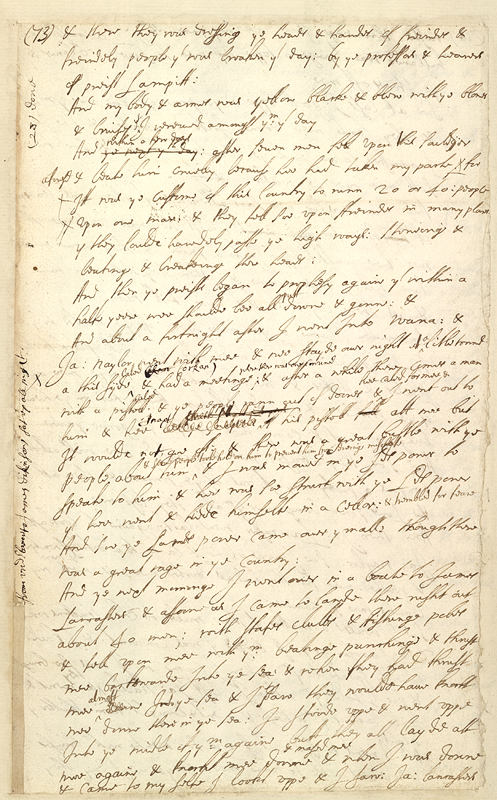 (73) & there they was dressing ye heads & hands of freinds &
freindely people yt was broaken yt day: by ye professors & hearers
of preist Lampitt:
And my body & armes was yellow blacke & blew with ye blows
& bruises yt I received amongst ym yt day
And within a few days after seven men fell upon this souldger
& beate him cruelly because hee had taken my parte for
Itt was ye custome of this Country to runn 20 or 40: people
upon one man: & they fell soe upon freinds in many places
yt they coulde hardely passe ye high ways: stoneinge &
beatinge & breakeinge there heads:
And then ye preist began to prophesy again yt within a
halfe yeere wee shoulde bee all putt downe & gonne: &
And about a fortnight after I went Into Wana: &
Ja: Naylor went with mee & wee stayde over night at
a this side & had a meetinge: & after a while there comes a man
with a pistoll & ye people runn out of doores & I went out to
him & hee his pistoll att mee but
Itt woulde not goe off & there was a great bustle with ye
people about him & I was moved in ye Lds power to
speake to him: & hee was soe struck with ye Lds power
yt hee went & hidde himselfe in a cellar: & trembled for feare
And soe ye Lords power came over ym all though there
was a great rage in ye Country:
And ye next morninge I went over in a boate to James
Lancasters & assoone as I came to lande there rusht out
about 40 men: with staffes clubbs & fishinge poles
& fell upon mee with ym beatinge punchinge & thrust
mee backewards Into ye sea: & when they had thrust
mee almost Into ye sea & I saw they woulde have knockt
mee downe there in ye sea: I stoode uppe & went uppe
Into ye midle of ym againe but they all layde att
mee againe & knockt mee downe & mased mee & when I was downe
& came to my selfe I lookt uppe & I saw: Ja: Lancasters